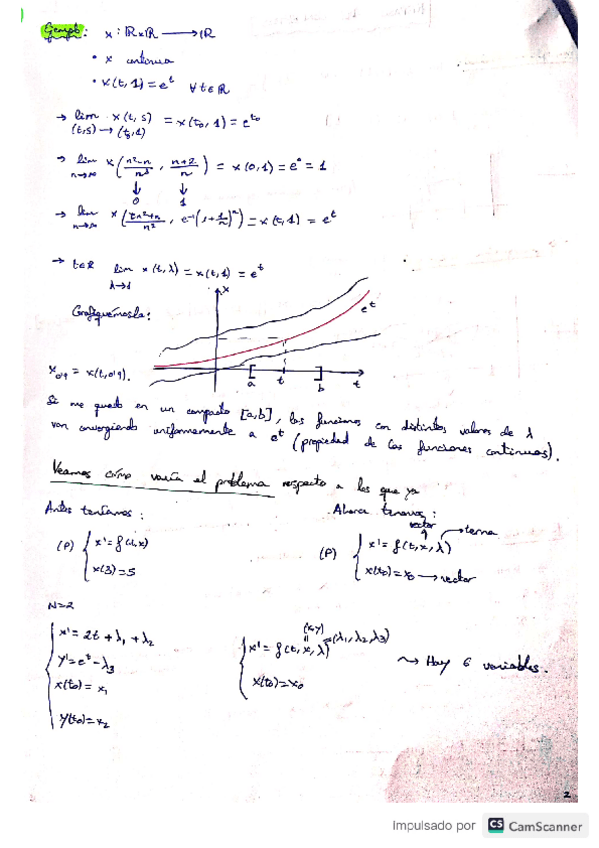 Ejemplo: x : ℝxℝ ⟶ ℝ
• x continua
• x(t,1) = e^t ∀t∈ℝ
→ lim x(t,s) = x(t₀,1) = e^{t₀}
(t,s)→(t₀,1)
→ lim x( (n²-n)/n³ , (n+2)/n ) = x(0,1) = e⁰ = 1
n→∞
↓ ↓
0 1
→ lim x( (tn²+n)/n² , e⁻¹(1+1/n)ⁿ ) = x(t,1) = e^t
n→∞
→ t∈ℝ lim x(t,λ) = x(t,1) = e^t
λ→1
Grafiquémosla:
x
e^t
x₀'₉ = x(t,0'9).
a t b t
Si me quedo en un compacto [a,b], las funciones con distintos valores de λ
van convergiendo uniformemente a e^t (propiedad de las funciones continuas).
Veamos cómo varía el problema respecto a los que ya
Antes teníamos: Ahora tenemos:
vector
terna
(P) { x' = f(t,x) (P) { x' = f(t,x,λ)
x(3) = 5 x(t₀) = x₀ → vector
N=2
x' = 2t + λ₁ + λ₂
y' = e^t - λ₃
x(t₀) = x₁
y(t₀) = x₂
(x,y) (λ₁,λ₂,λ₃)
x' = f(t,x,λ)
x(t₀) = x₀
⤳ Hay 6 variables.
2
Impulsado por CS CamScanner